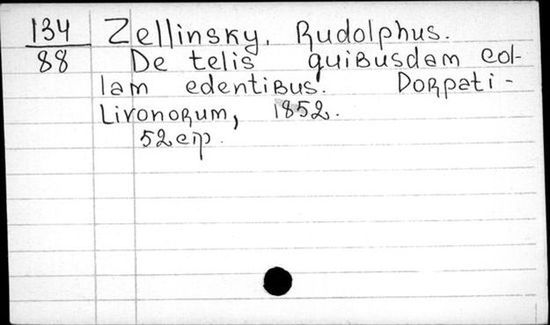 134 Zellinsky, Rudolphus.
88 De telis quibusdam col-
lam edentibus. Dorpati-
Livonorum, 1852.
52 стр.